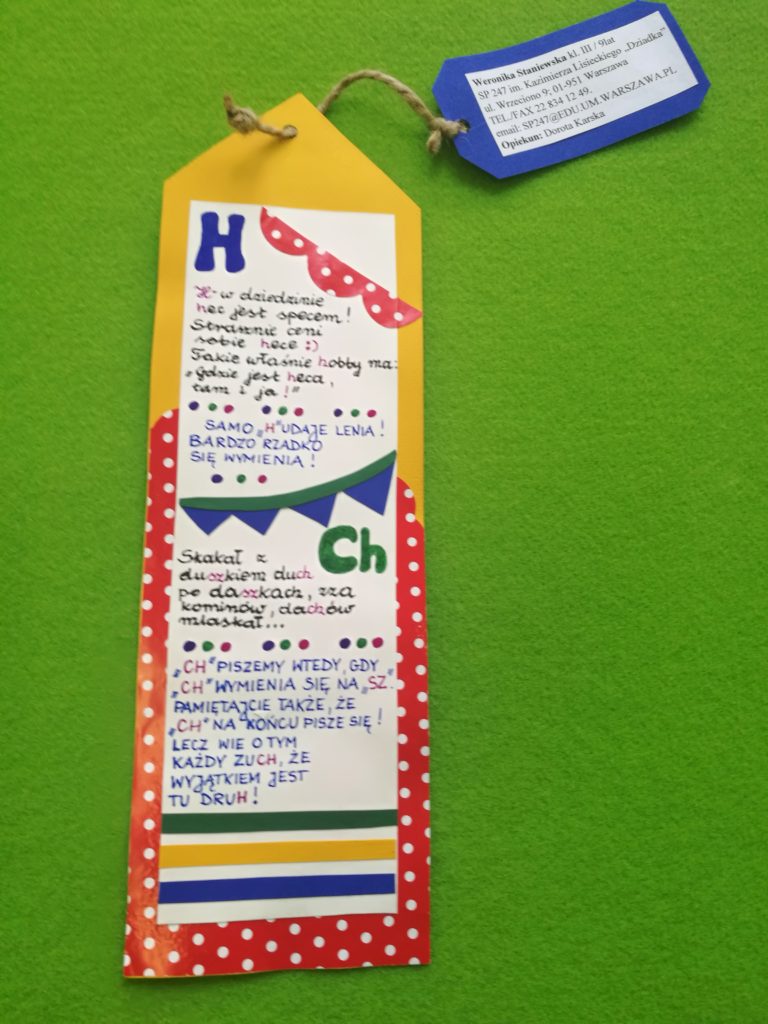 Weronika Staniewska kl. III / 9lat
SP 247 im. Kazimierza Lisieckiego „Dziadka”
ul. Wrzeciono 9; 01-951 Warszawa
TEL./FAX 22 834 12 49.
email: SP247@EDU.UM.WARSZAWA.PL
Opiekun: Dorota Karska
H
H- w dziedzinie
hec jest specem!
Strasznie ceni
sobie hece :)
Takie właśnie hobby ma:
„Gdzie jest heca,
tam i ja!”
SAMO „H” UDAJE LENIA!
BARDZO RZADKO
SIĘ WYMIENIA!
Ch
Skakał z
duszkiem duch
po daszkach, zza
kominów, dachów
mlaskał...
„CH” PISZEMY WTEDY, GDY
„CH” WYMIENIA SIĘ NA „SZ”.
PAMIĘTAJCIE TAKŻE, ŻE
„CH” NA KOŃCU PISZE SIĘ!
LECZ WIE O TYM
KAŻDY ZUCH, ŻE
WYJĄTKIEM JEST
TU DRUH!